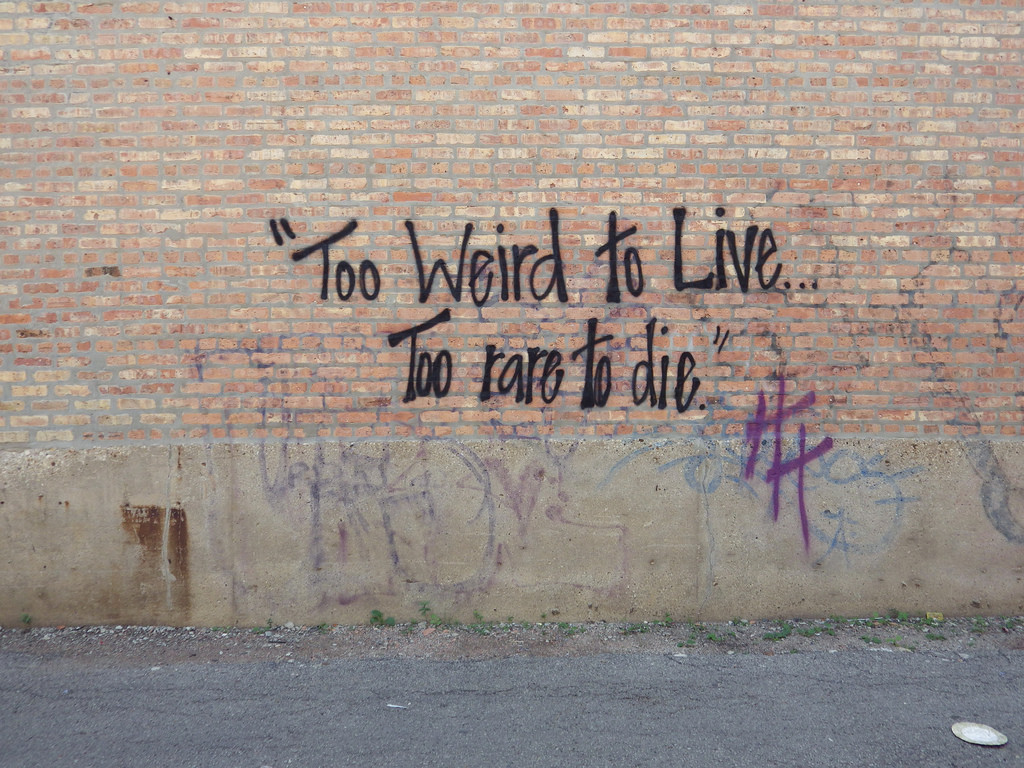 "Too Weird to Live...
Too rare to die."